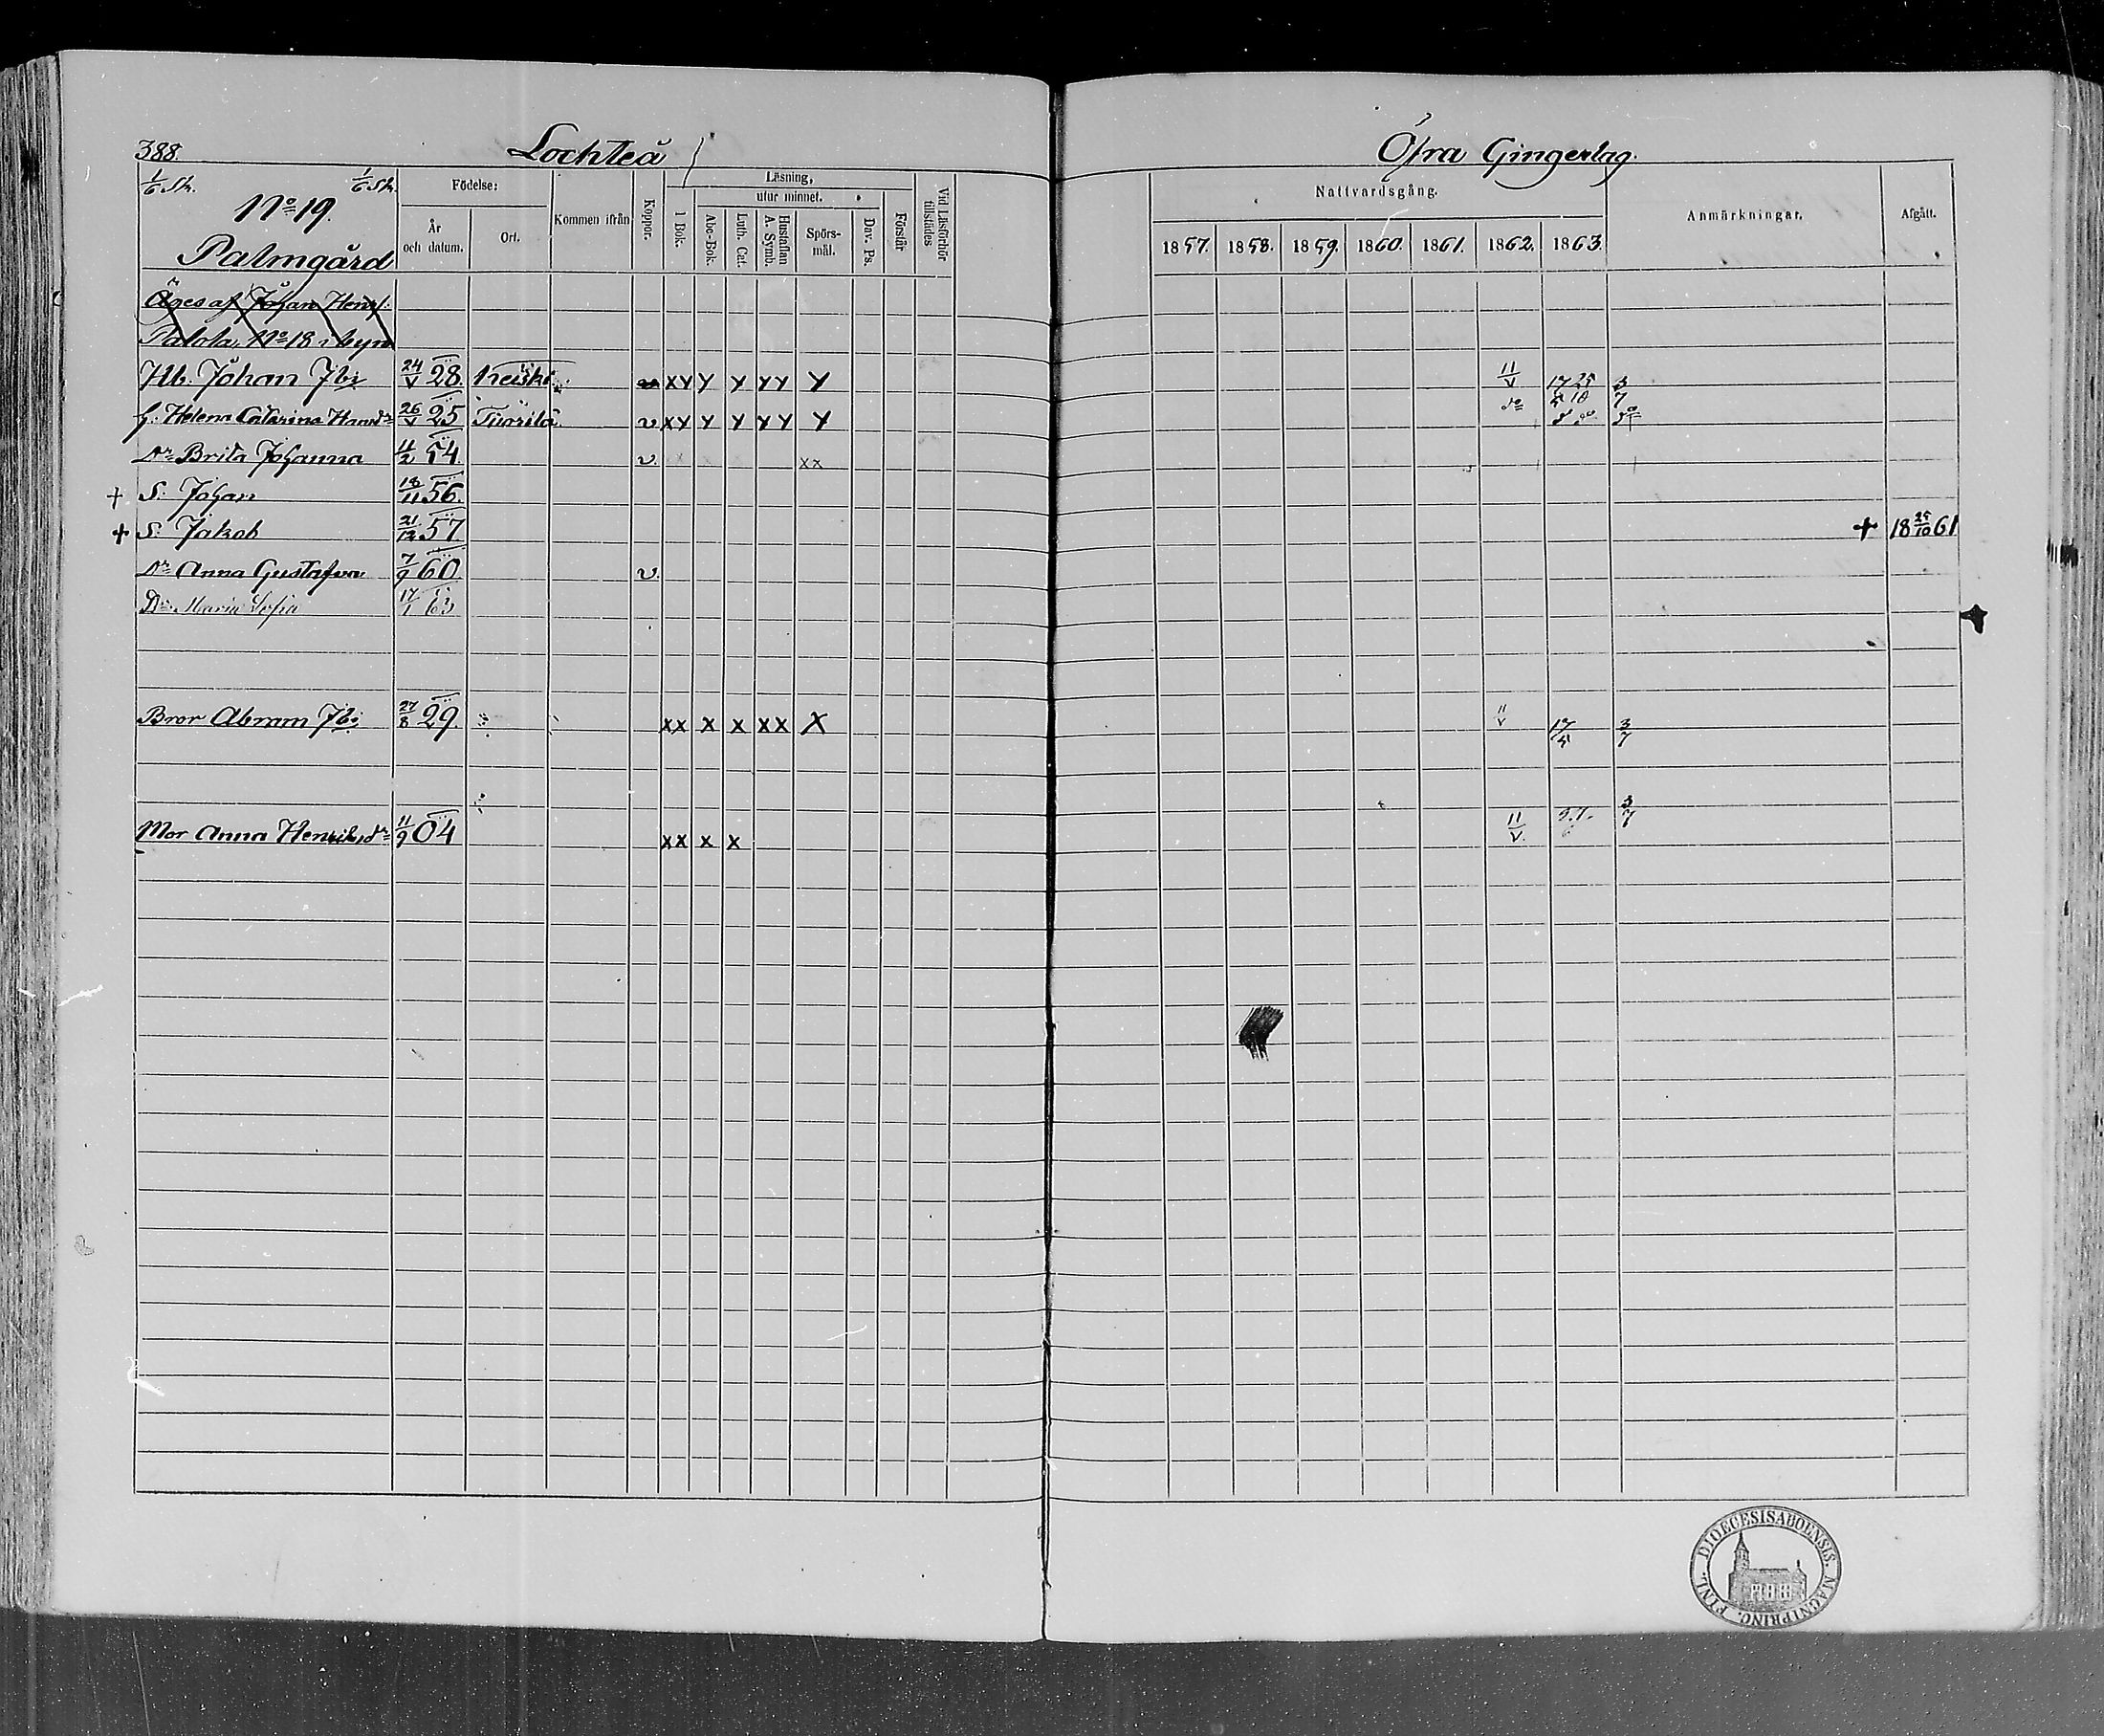 388. Lochteå Öfra Gingerlag.
1/6 Sk. 1/6 Sk.
No 19.
Palmgård
Födelse:
År och datum.
Ort.
Kommen ifrån
Koppor.
Läsning,
utur minnet.
I Bok.
Abc-Bok.
Luth. Cat.
Hustaflan A. Symb.
Spörs-mål.
Dav. Ps.
Förstår
Vid Läsförhör tillstädes
Nattvardsgång.
1857. 1858. 1859. 1860. 1861. 1862. 1863.
Anmärkningar.
Afgått.
Äges af Johan Henr:
Palola, No 18 i byn
Hb. Johan Jbs 24/V 28. x Y Y Y Y Y Y 11/V 3/7
h: Helena Catarina 26/V 25 v x Y Y Y Y Y Y do
Dr Brita Johanna 11/2 54. v. x x
+ S: Johan 18/11 56.
+ S. Jakob 21/12 57 + 18 25/10 61
Dr Anna Gustafva 7/9 60. v.
Dr Maria Sofia 17/1 63
Bror Abram Jbs 27/8 29. x x x x x x X 11/V 17/5 3/7
Mor Anna Henriksdr 11/9 04 x x x x 11/V. 3/7
FINL. DIOECESIS ABOENSIS. MAGNI PRINC.